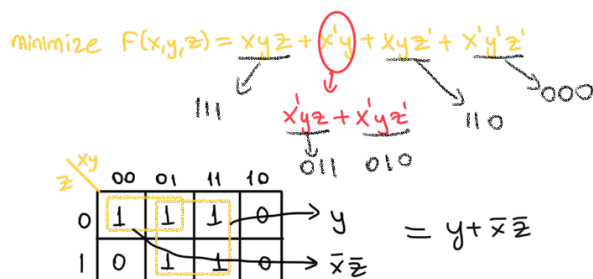 minimize F(x,y,z) = xyz + x'y + xyz' + x'y'z'
111 x'yz + x'yz' 110 000
011 010
xy
z 00 01 11 10
0 1 1 1 0 → y = y + x̄ z̄
1 0 1 1 0 → x̄ z̄